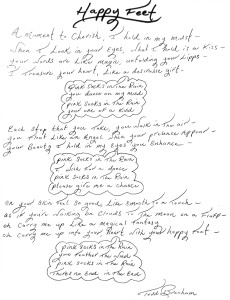 Happy Feet
A moment to Cherish, I hold in my midst -
When I Look in your Eyes, what I hold is a Kiss -
your words are Like magic, unfolding your Lipps -
I Treasure your heart, Like a desirable gift -
pink socks in The Rain
you dance on my mind
pink socks in The Rain
your one of a kind
Each Step that you Take, you walk in The air -
you Float Like an Angel when your presence appear -
your Beauty I hold in my Eyes you Enhance -
pink socks in The Rain
I wish for a dance
pink socks in The Rain
please give me a chance
on your Skin Feel So good, Like Smooth To a Touch -
as if you're walking on Clouds To The moon on a
oh Carry me up Like a magical Fantasy
oh Carry me up into your Heart with your happy Feet -
pink Socks in The Rain
you The
pink socks in The Rain
There's no in The